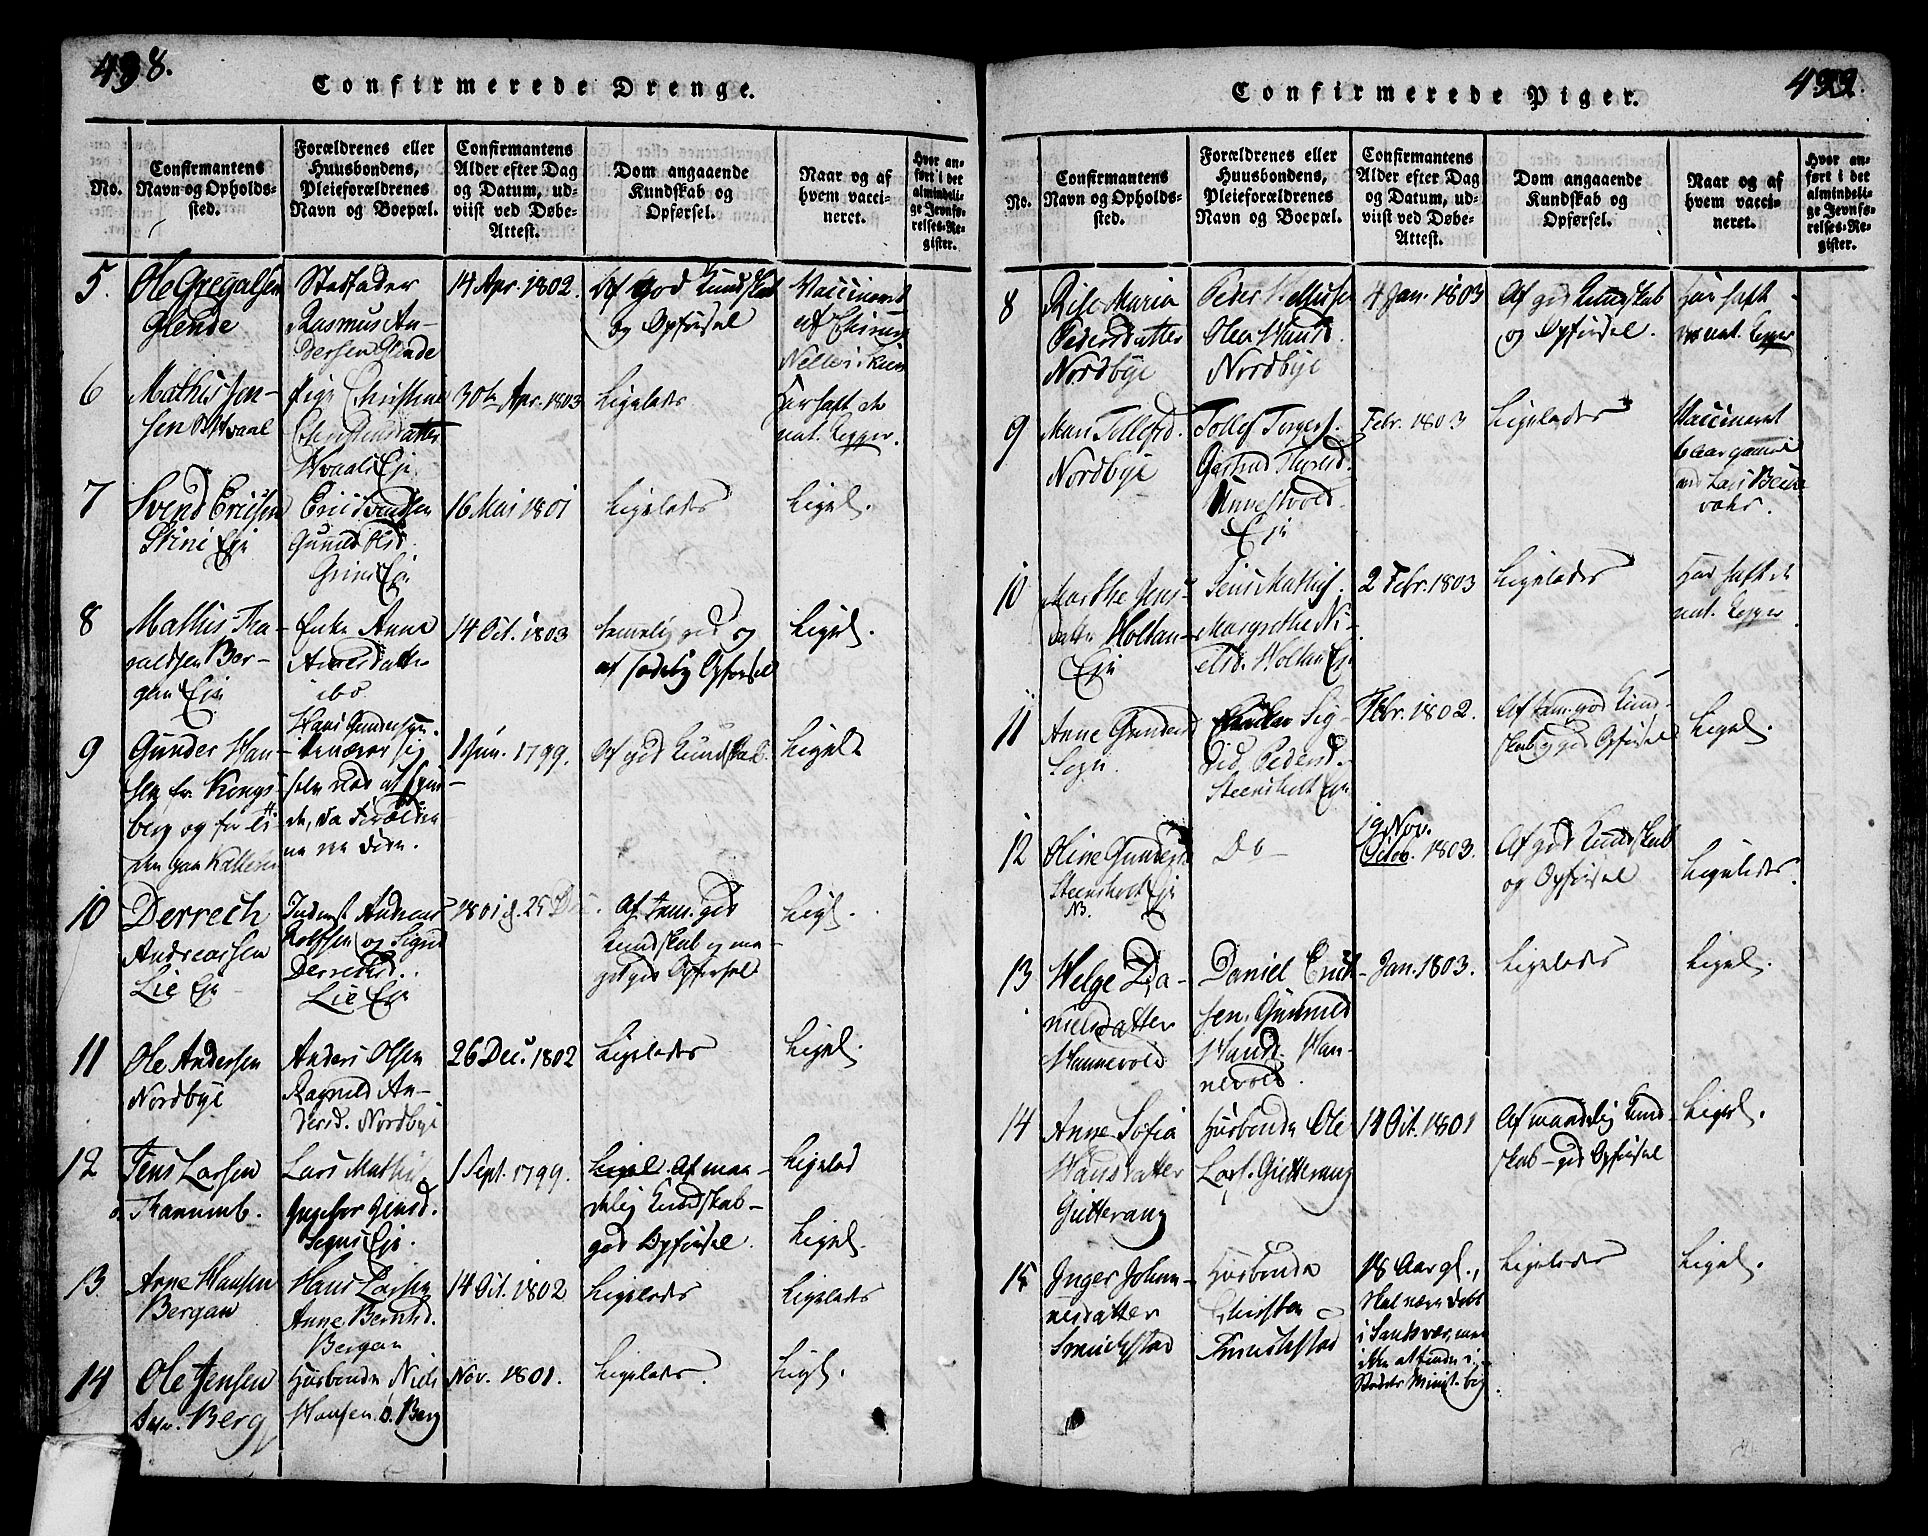 438.
Confirmerede Drenge.
No.
Confirmantens
Navn og Opholds-
sted.
Forældrenes eller
Huusbondens,
Pleieforældrenes
Navn og Boepæl.
Confirmantens
Alder efter Dag
og Datum, ud-
viist ved Døbe-
Attest.
Dom angaaende
Kundskab og
Opførsel.
Naar og af
hvem vacci-
neret.
Hvor an-
ført i det
almindeli-
ge Jevnfø-
relses-Re-
gister.
5.
Ole Gregalsen
Glende
Rasmus An-
dersen Glende
14 Apr. 1802.
Af god Kundskab
og Opførsel
Vaccineret
6
Mathis Jen-
sen Hvaal
Pige Christine
Christensdatter
Hvaals Eje
30te Apr. 1803
Ligeledes
Har haft de
nat. Kopper.
7
Svend Ericsen
Grini Eje
Eric Svendsen
Gunild Olsd.
Grini Eje
16 Mai 1801
Ligeledes
Ligel.
8
Mathis Tra-
valdsen Ber-
gan Eje
Enke Anne
Arnesdatter
ibd
14 Oct. 1803
temelig god og
af sædelig Opførsel
Ligel.
9
Gunder Han-
sen fr. Kongs-
berg og for ti-
den paa
Hans Gundersen.
ernærer sig
selv ved at
1 Jun. 1799.
Af god Kundskab.
Ligel.
10
Derrech
Andreassen
Lie Eje
Inderst Andreas
Rolfsen og Sigrid
Derrechsd.
Lie Eje
1801 d. 25 Dec.
Af tem. god
Kundskab og me-
get god Opførsel
Ligel.
11
Ole Andersen
Nordbye
Anders Olsen
Ragnild An-
dersd. Nordbye
26 Dec. 1802
Ligeledes
Ligel.
12
Jens Larsen
Lars Mathis.
Ingebor Jensd.
Segns Eje.
1 Sept. 1799.
Ligel. Af maa-
delig Kundskab-
god Opførsel.
Ligeled
Ligel.
13
Arne Hansen
Bergan
Hans Larsen
Anne Berntsd.
Bergan
14 Oct. 1802
Ligeledes
Ligeledes
14
Ole Jensen
Berg
Husbonde Niels
Hansen o. Berg
Nov. 1801.
Ligeledes.
Ligel.
439.
Confirmerede Piger.
No.
Confirmantens
Navn og Opholds-
sted.
Forældrenes eller
Huusbondens,
Pleieforældrenes
Navn og Boepæl.
Confirmantens
Alder efter Dag
og Datum, ud-
viist ved Døbe-
Attest.
Dom angaaende
Kundskab og
Opførsel.
Naar og af
hvem vacci-
neret.
Hvor an-
ført i det
almindeli-
ge Jevnfø-
relses-Re-
gister.
8
Maria
Pedersdatter
Nordbye
Peder
Olea Hansd.
Nordbye
4 Jan. 1803
Af god Kundskab
og Opførsel.
Har haft
nat. Kopper
9
Mari Tollefsd.
Nordbye
Tollef Torgers.
Unnestvold
Eje
Febr. 1803
Ligeledes
Vaccineret
10
Marthe Jens-
datter Holtan-
Eje
Jens Mathis.
Margrethe Ni-
elsd. Holtan Eje
2 Febr. 1803
Ligeledes
Har haft de
nat. Kopper
11
Anne Gundersd
Segn
Enken Sig-
rid Pedersd.
Steensholt Eje
Febr. 1802.
Af tem. god Kund-
skab og god Opførsel
Ligel.
12
Oline Gundersd.
Steensholt Eje
NB.
Do
19 Nov.
Octob. 1803.
Af god Kundskab
og Opførsel
Ligeledes.
13
Helge Da-
nielsdatter
Hannevold
Daniel Erich-
sen, Gunnild
Hansd. Han-
nevold.
Jan. 1803.
Ligeledes
Ligel.
14
Anne Sofia
Hansdatter
Gutterang
Husbonde Ole
Lars. Gutterang
14 Oct. 1801
Af maadelig Kund-
skab - god Opførsel
Ligel.
15
Inger Johan-
nesdatter
Smuchestad
Husbonde
Christen
Smuchestad
18 Aar gl.,
skal være døbt
i Sandsvær, men
ikke at finde i
Stedets Minist. bog
Ligeledes
Ligel.